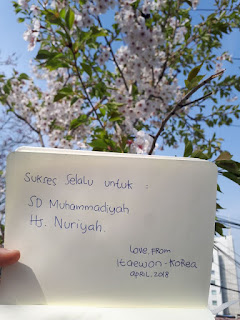 Sukses Selalu untuk :
SD Muhammadiyah
Hj. Nuriyah.
Love, From
Itaewon - Korea
April, 2018